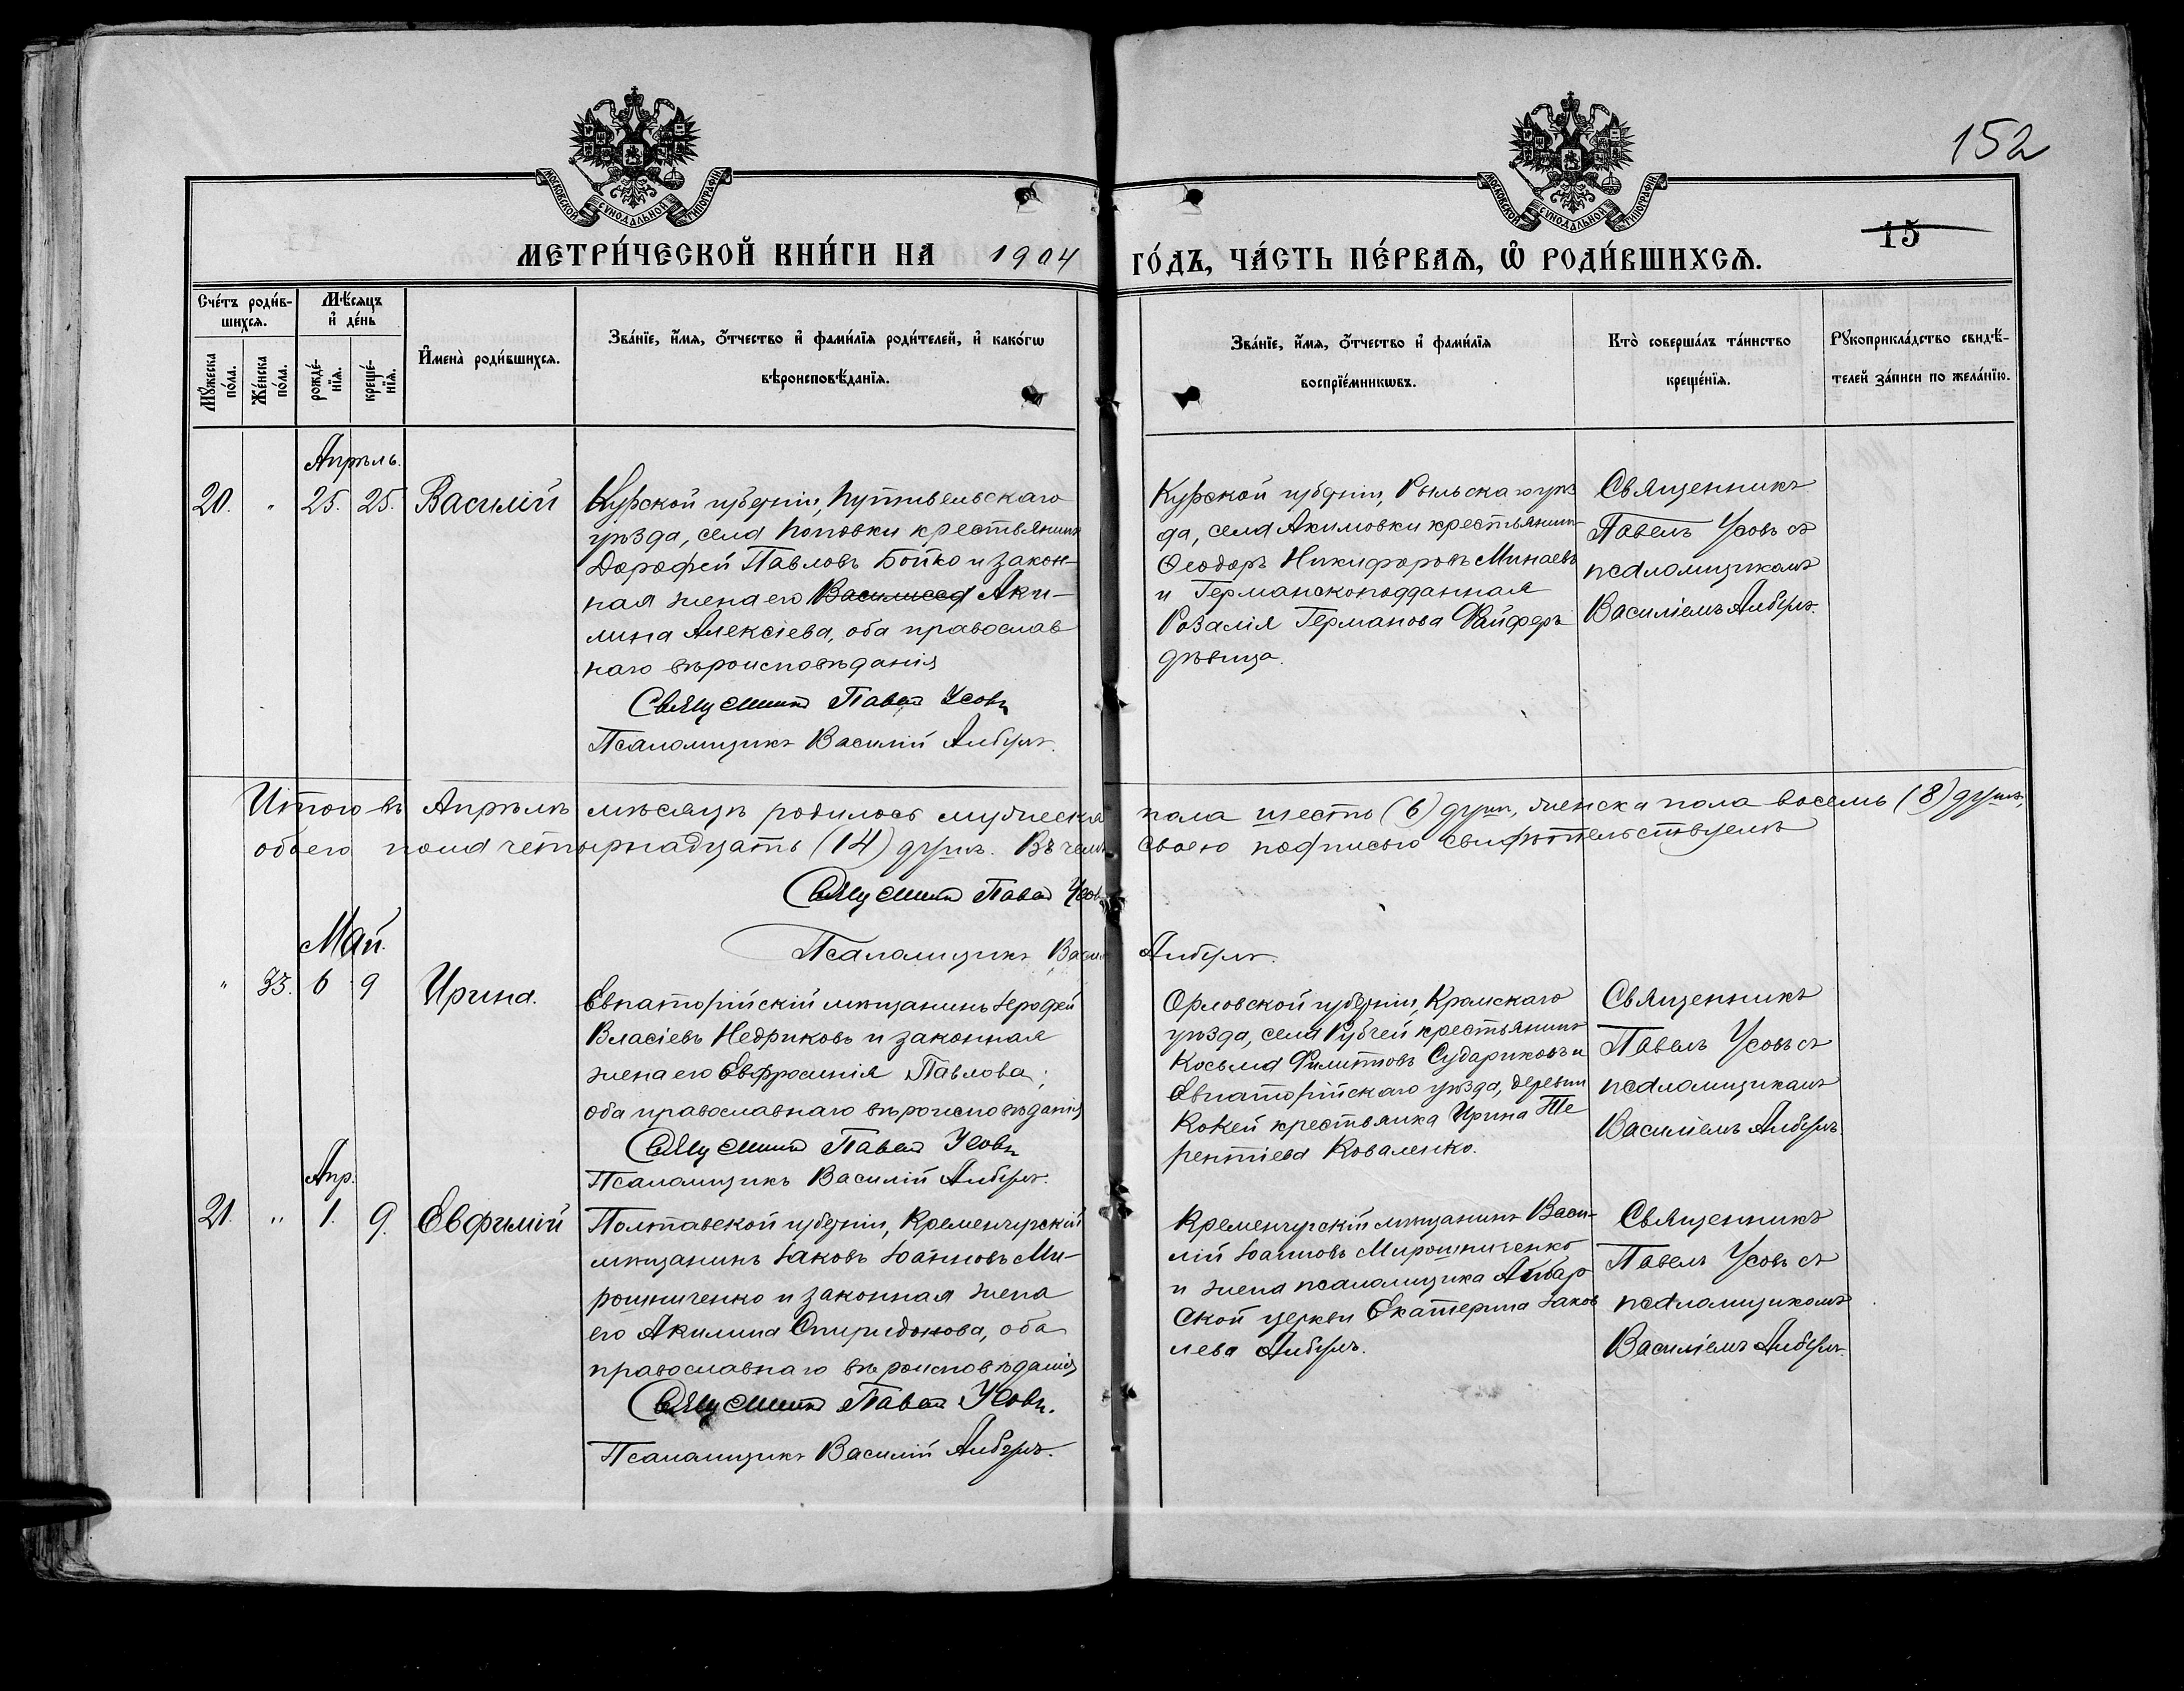 152
МОСКОВСКОЙ СѴНОДАЛЬНОЙ ТИПОГРАФІИ
МОСКОВСКОЙ СѴНОДАЛЬНОЙ ТИПОГРАФІИ
15
МЕТРИ́ЧЕСКОЙ КНИ́ГИ НА 1904
ГО́ДЪ, ЧА́СТЬ ПЕ́РВАѦ, Ѡ҆ РОДИ́ВШИХСѦ.
Сче́тъ роди́в-
шихсѧ.
Мꙋ́жеска
по́ла.
Же́нска
по́ла.
Мѣ́сѧцъ
и҆ де́нь
рожде́-
нїѧ.
креще́-
нїѧ.
И҆мена̀ роди́вшихсѧ.
Зва́нїе, и҆́мѧ, ѻ҆́тчество и҆ фами́лїѧ роди́телей, и҆ како́гѡ
вѣроисповѣ́данїѧ.
Зва́нїе, и҆́мѧ, ѻ҆́тчество и҆ фами́лїѧ
воспрїе́мникѡвъ.
Кто̀ соверша́лъ та́инство
креще́нїѧ.
Рꙋкоприкла́дство свидѣ́-
телей за́писи по жела́нїю.
Апрѣль.
20. " 25. 25. Василій
Курской губерніи, Путивельскаго
уѣзда, села Поповки крестьянинъ
Дорофей Павловъ Бойко и закон-
ная жена его Василисса Аки-
лина Алексіева, оба православ
наго вѣроисповѣданія
Священникъ Павелъ Усовъ
Псаломщикъ Василій
Курской губерніи, Рыльскаго уѣз
да, села Акимовки крестьянинъ
Ѳеодоръ Никифоровъ Минаевъ
и Германскоподданная
Розалія Германова Файферъ
дѣвица.
Священникъ
Павелъ Усовъ съ
псаломщикомъ
Василіемъ
Итого въ Апрѣлѣ мѣсяцѣ родилось мужеска пола шесть (6) душъ, женска пола восемь (8) душъ,
обоего пола четырнадцать (14) душъ. Въ чемъ своею подписью свидѣтельствуемъ
Священникъ Павелъ Усовъ
Псаломщикъ
Май.
" 33. 6 9 Ирина.
Евпаторійскій мѣщанинъ Іерофей
Власіевъ Недриковъ и законная
жена его Евфросинія Павлова;
оба православнаго вѣроисповѣданія
Священникъ Павелъ Усовъ
Псаломщикъ Василій
Орловской губерніи, Кромскаго
уѣзда, села Рубчей крестьянинъ
Косьма Филиповъ Судариковъ и
Евпаторійскаго уѣзда, деревни
Кокей крестьянка Ирина Те
рентіева Коваленко.
Священникъ
Павелъ Усовъ съ
псаломщикомъ
Василіемъ
Апр.
21. " 1. 9. Евфимій
Полтавской губерніи, Кременчугскій
мѣщанинъ Іаковъ Іоанновъ Ми-
рошниченко и законная жена
его Акилина Спиридонова, оба
православнаго вѣроисповѣданія
Священникъ Павелъ Усовъ.
Псаломщикъ Василій
Кременчугскій мѣщанинъ Васи-
лій Іоанновъ Мирошниченко
и жена псаломщика Айбар
ской церкви Екатерина Іаков
лева
Священникъ
Павелъ Усовъ съ
псаломщикомъ
Василіемъ